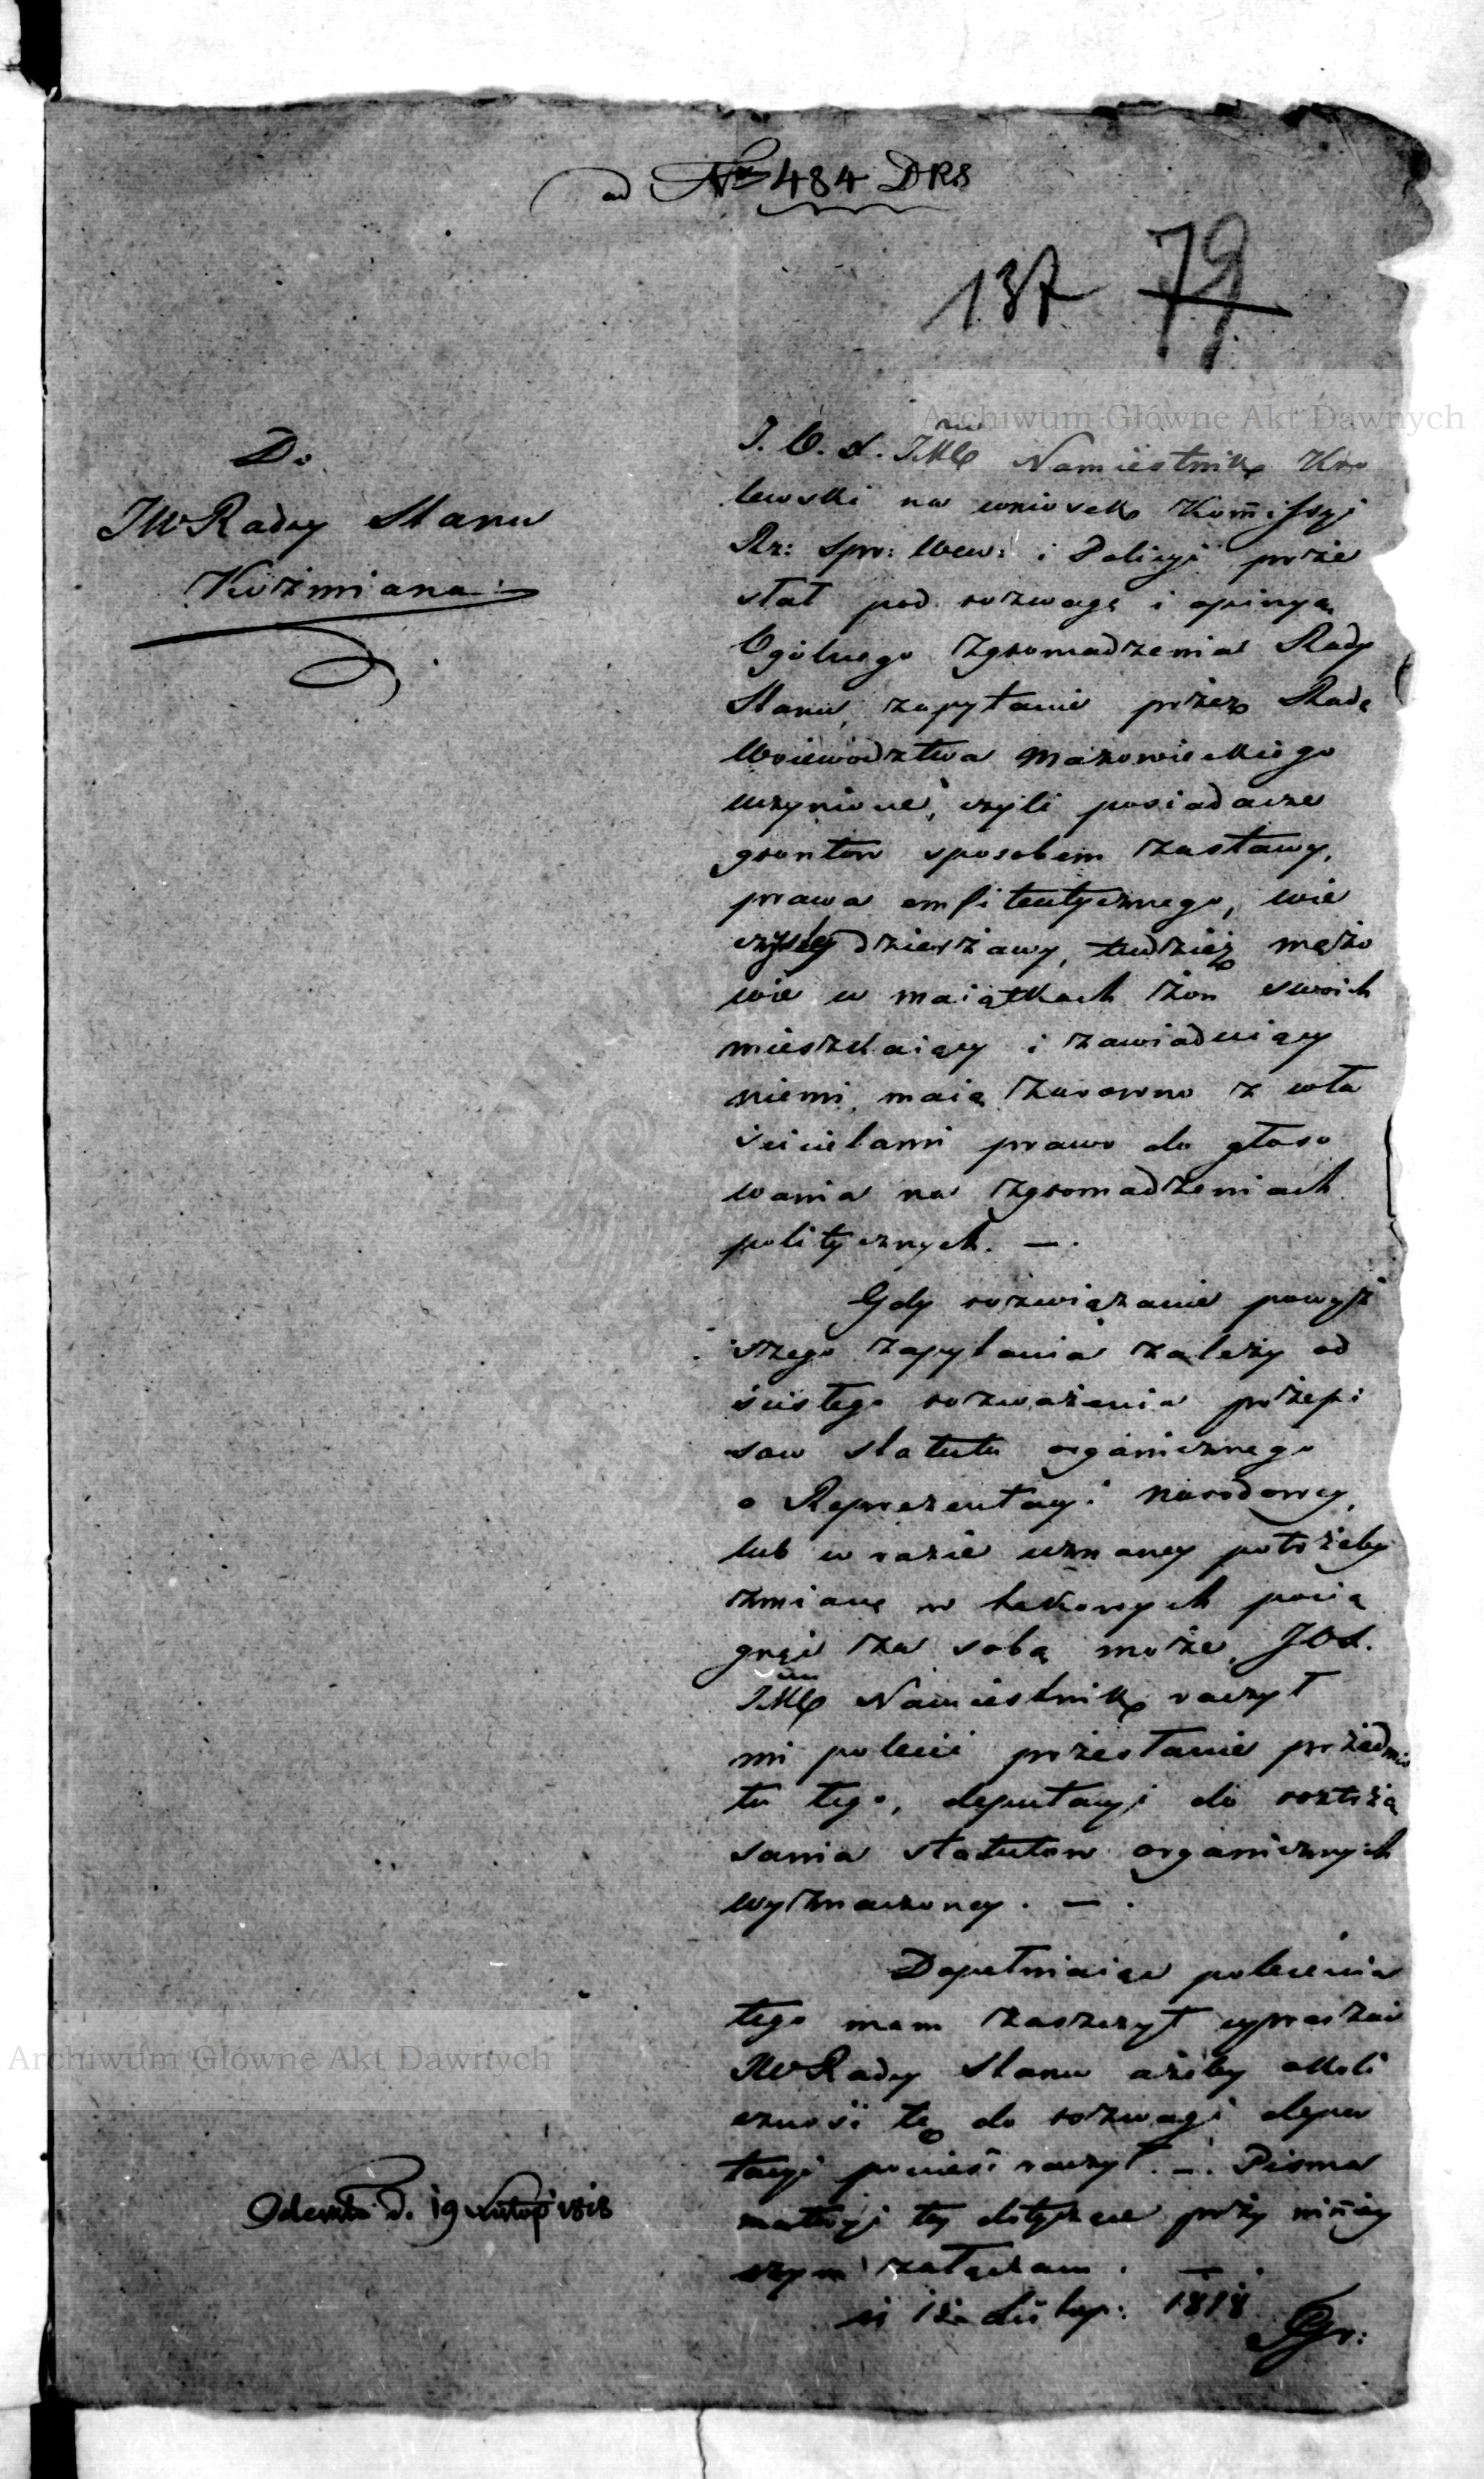 ad Nr 484 DRS
137 79
Archiwum Główne Akt Dawnych
Do
JW Radcy Stanu
Koźmiana
J. O. X. JMć Namiestnik Kro
lewski na wniosek Kommissyi
Rz: Spr: Wew: i Policyi prze
słał pod rozwagę i opinyą
Ogólnego Zgromadzenia Rady
Stanu, zapytanie przez Radę
Woiewodztwa Mazowieckiego
uczynione, czyli posiadacze
grontow sposobem zastawy,
prawa emfiteutycznego, wie
czystey dzierżawy, tudzież mężo
wie w maiątkach żon swoich
mieszkaiący i zawiaduiący
niemi, maią zarowno z wła
ścicielami prawo do głoso
wania na zgromadzeniach
politycznych. —.
Gdy rozwiązanie powyż
szego zapytania zależy od
ścisłego rozważenia przepi
sow statutu organicznego
o Reprezentacyi Narodowey,
lub w razie uznaney potrzeby
zmianę w takowych pocią
gnąć za sobą może, JOX.
JMć Namiestnik raczył
mi polecić przesłanie przedmio
tu tego, deputacyi do roztrzą
sania statutow organicznych
wyznaczoney. —.
Dopełniaiąc polecenia
tego mam zaszczyt upraszać
JW Radcy Stanu ażeby okoli
czność tę do rozwagi depu
tacyi ponieść raczył. —. Pisma
materyi tey dotyczące przy niniey
szym załączam. —.
Archiwum Główne Akt Dawnych
Odesłano d. 19 Listop 1818
Listop: 1818